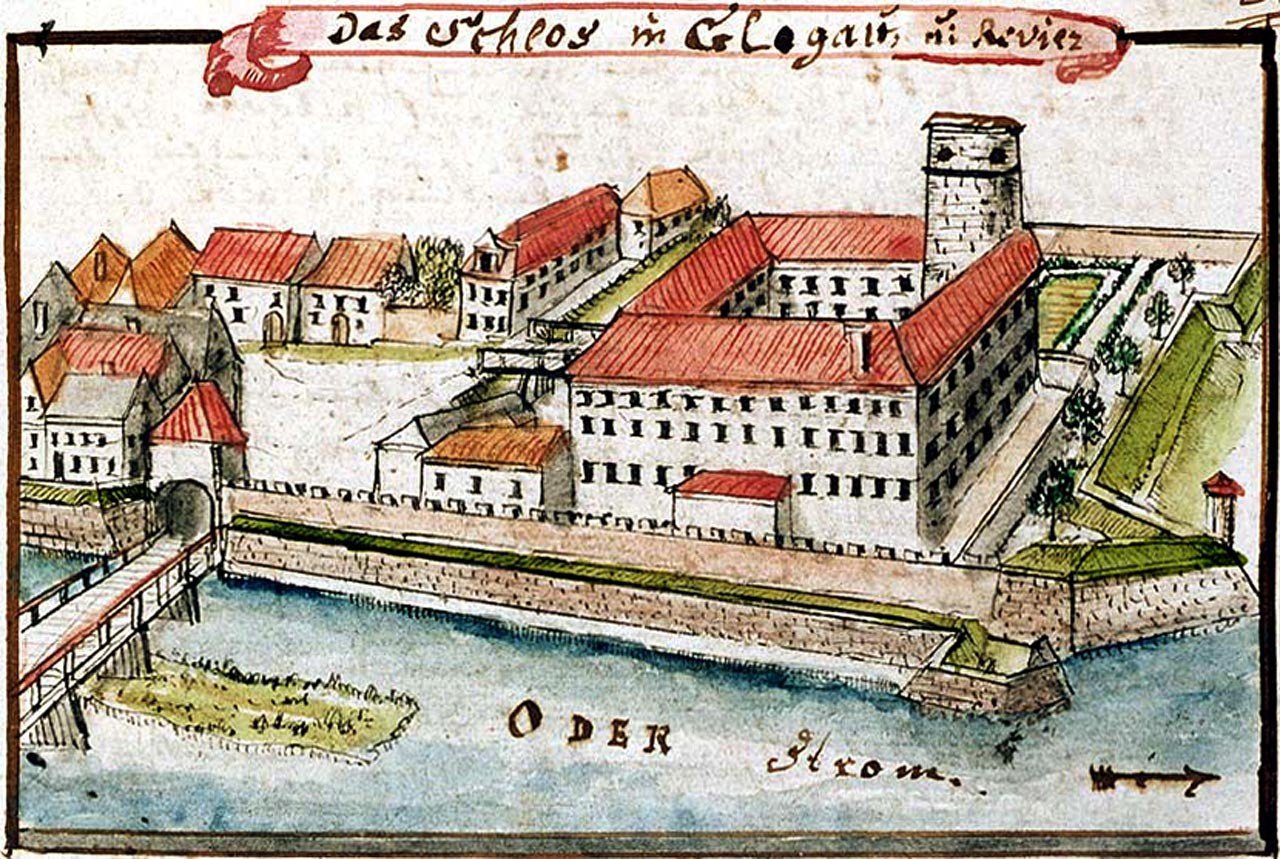 Das Schlos in Glogau, ū Revier
ODER Strom.